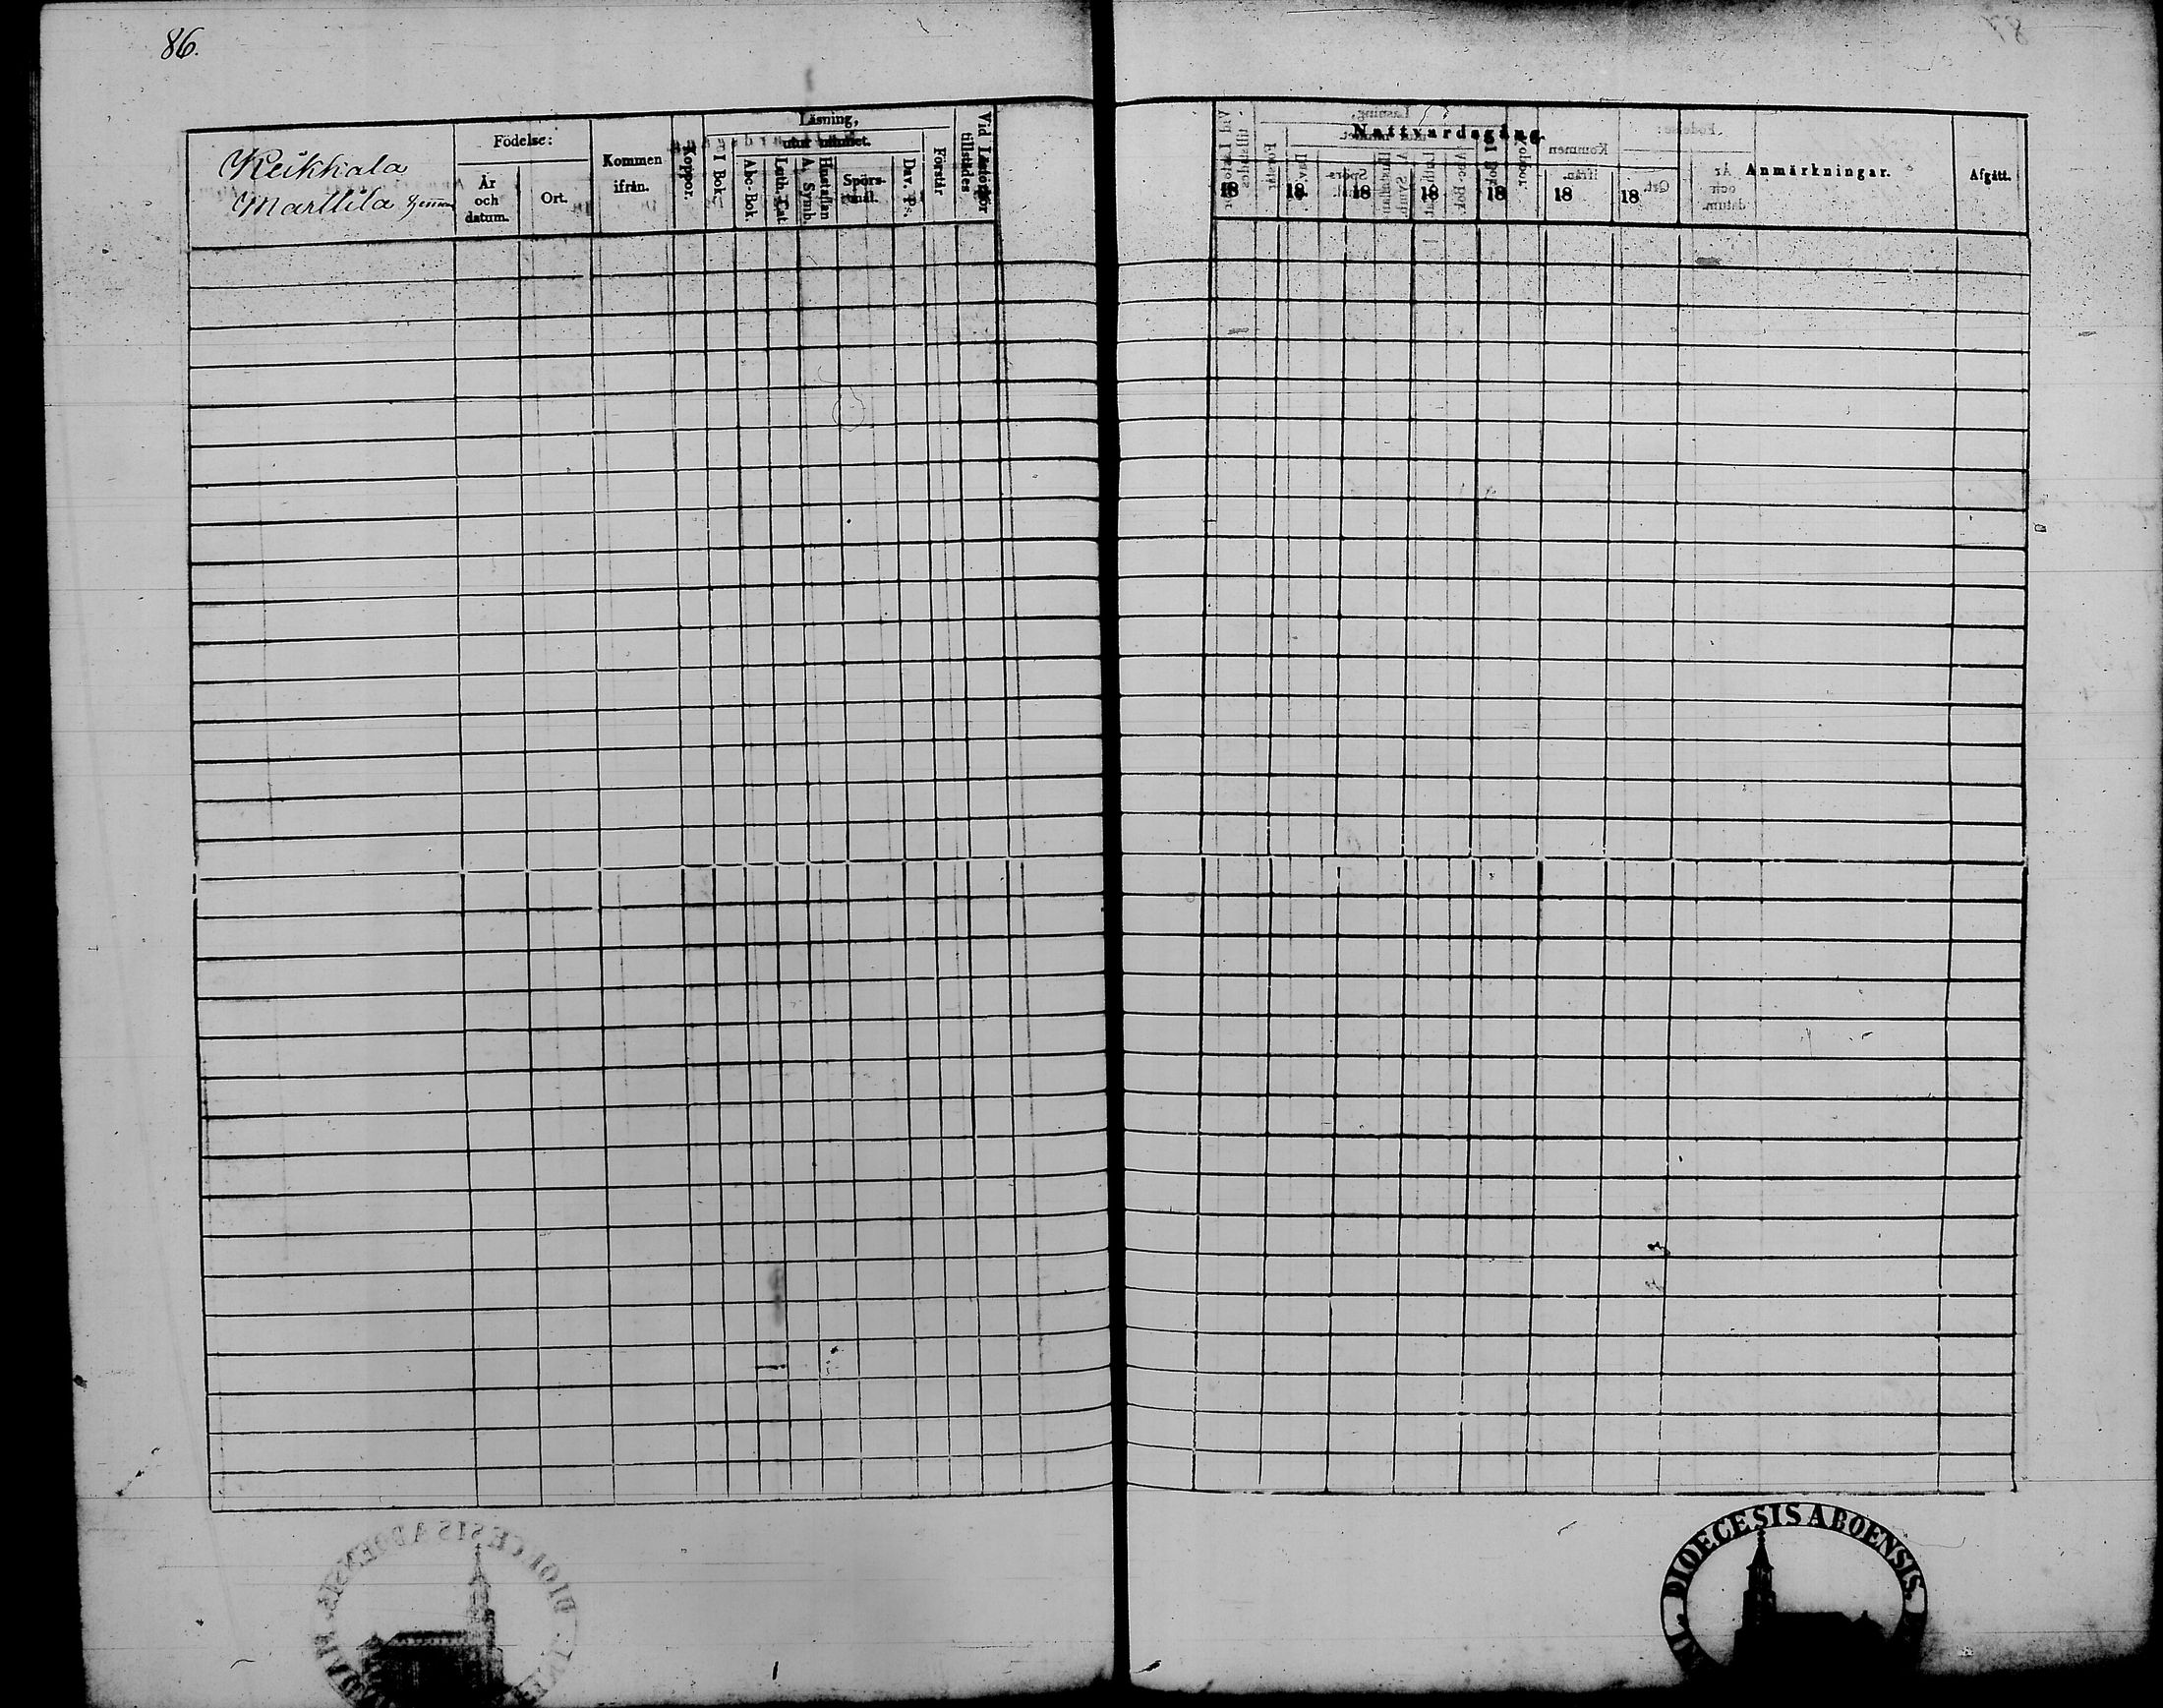 86.
Keikkala
Marttila
Födelse:
År
och
datum.
Ort.
Kommen
ifrån.
Koppor.
Läsning,
utur minnet.
I Bok
Abc-Bok.
Luth. Cat.
A. Symb.
Hustaflan
Spörs-
mål.
Dav. Ps.
Förstår.
Vid Läsförhör
tillstädes.
Nattvardsgång.
18
18
18
18
18
18
18
Anmärkningar.
Afgått.
DIOECESIS ABOENSIS.